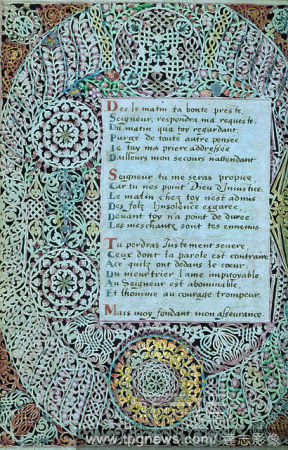 Des le matin ta bonte preste
Seigneur, respondra ma requeste
Du matin qua toy regardant
Purge de toute autre pensee
Je toy ma priere addressee
Dailleurs mon secours nattendant
Seigneur tu me seras propice
Car tu nes point Dieu d'Iniustice
Le matin chez toy nest admis
Des folz l'insolence esgaree
Deuant toy n'a point de duree
Les meschantz sont tes ennemis
Tu perdras Iustement seuere
Ceux dont ta parole est contraire
Ace quilz ont dedans le coeur
Du meurtrier l'ame impitoyable
Au Seigneur est abominable
Et lhomme au courage trompeur.
Mais moy fondant mon asseurance
www.tpgnews.com 達志影像